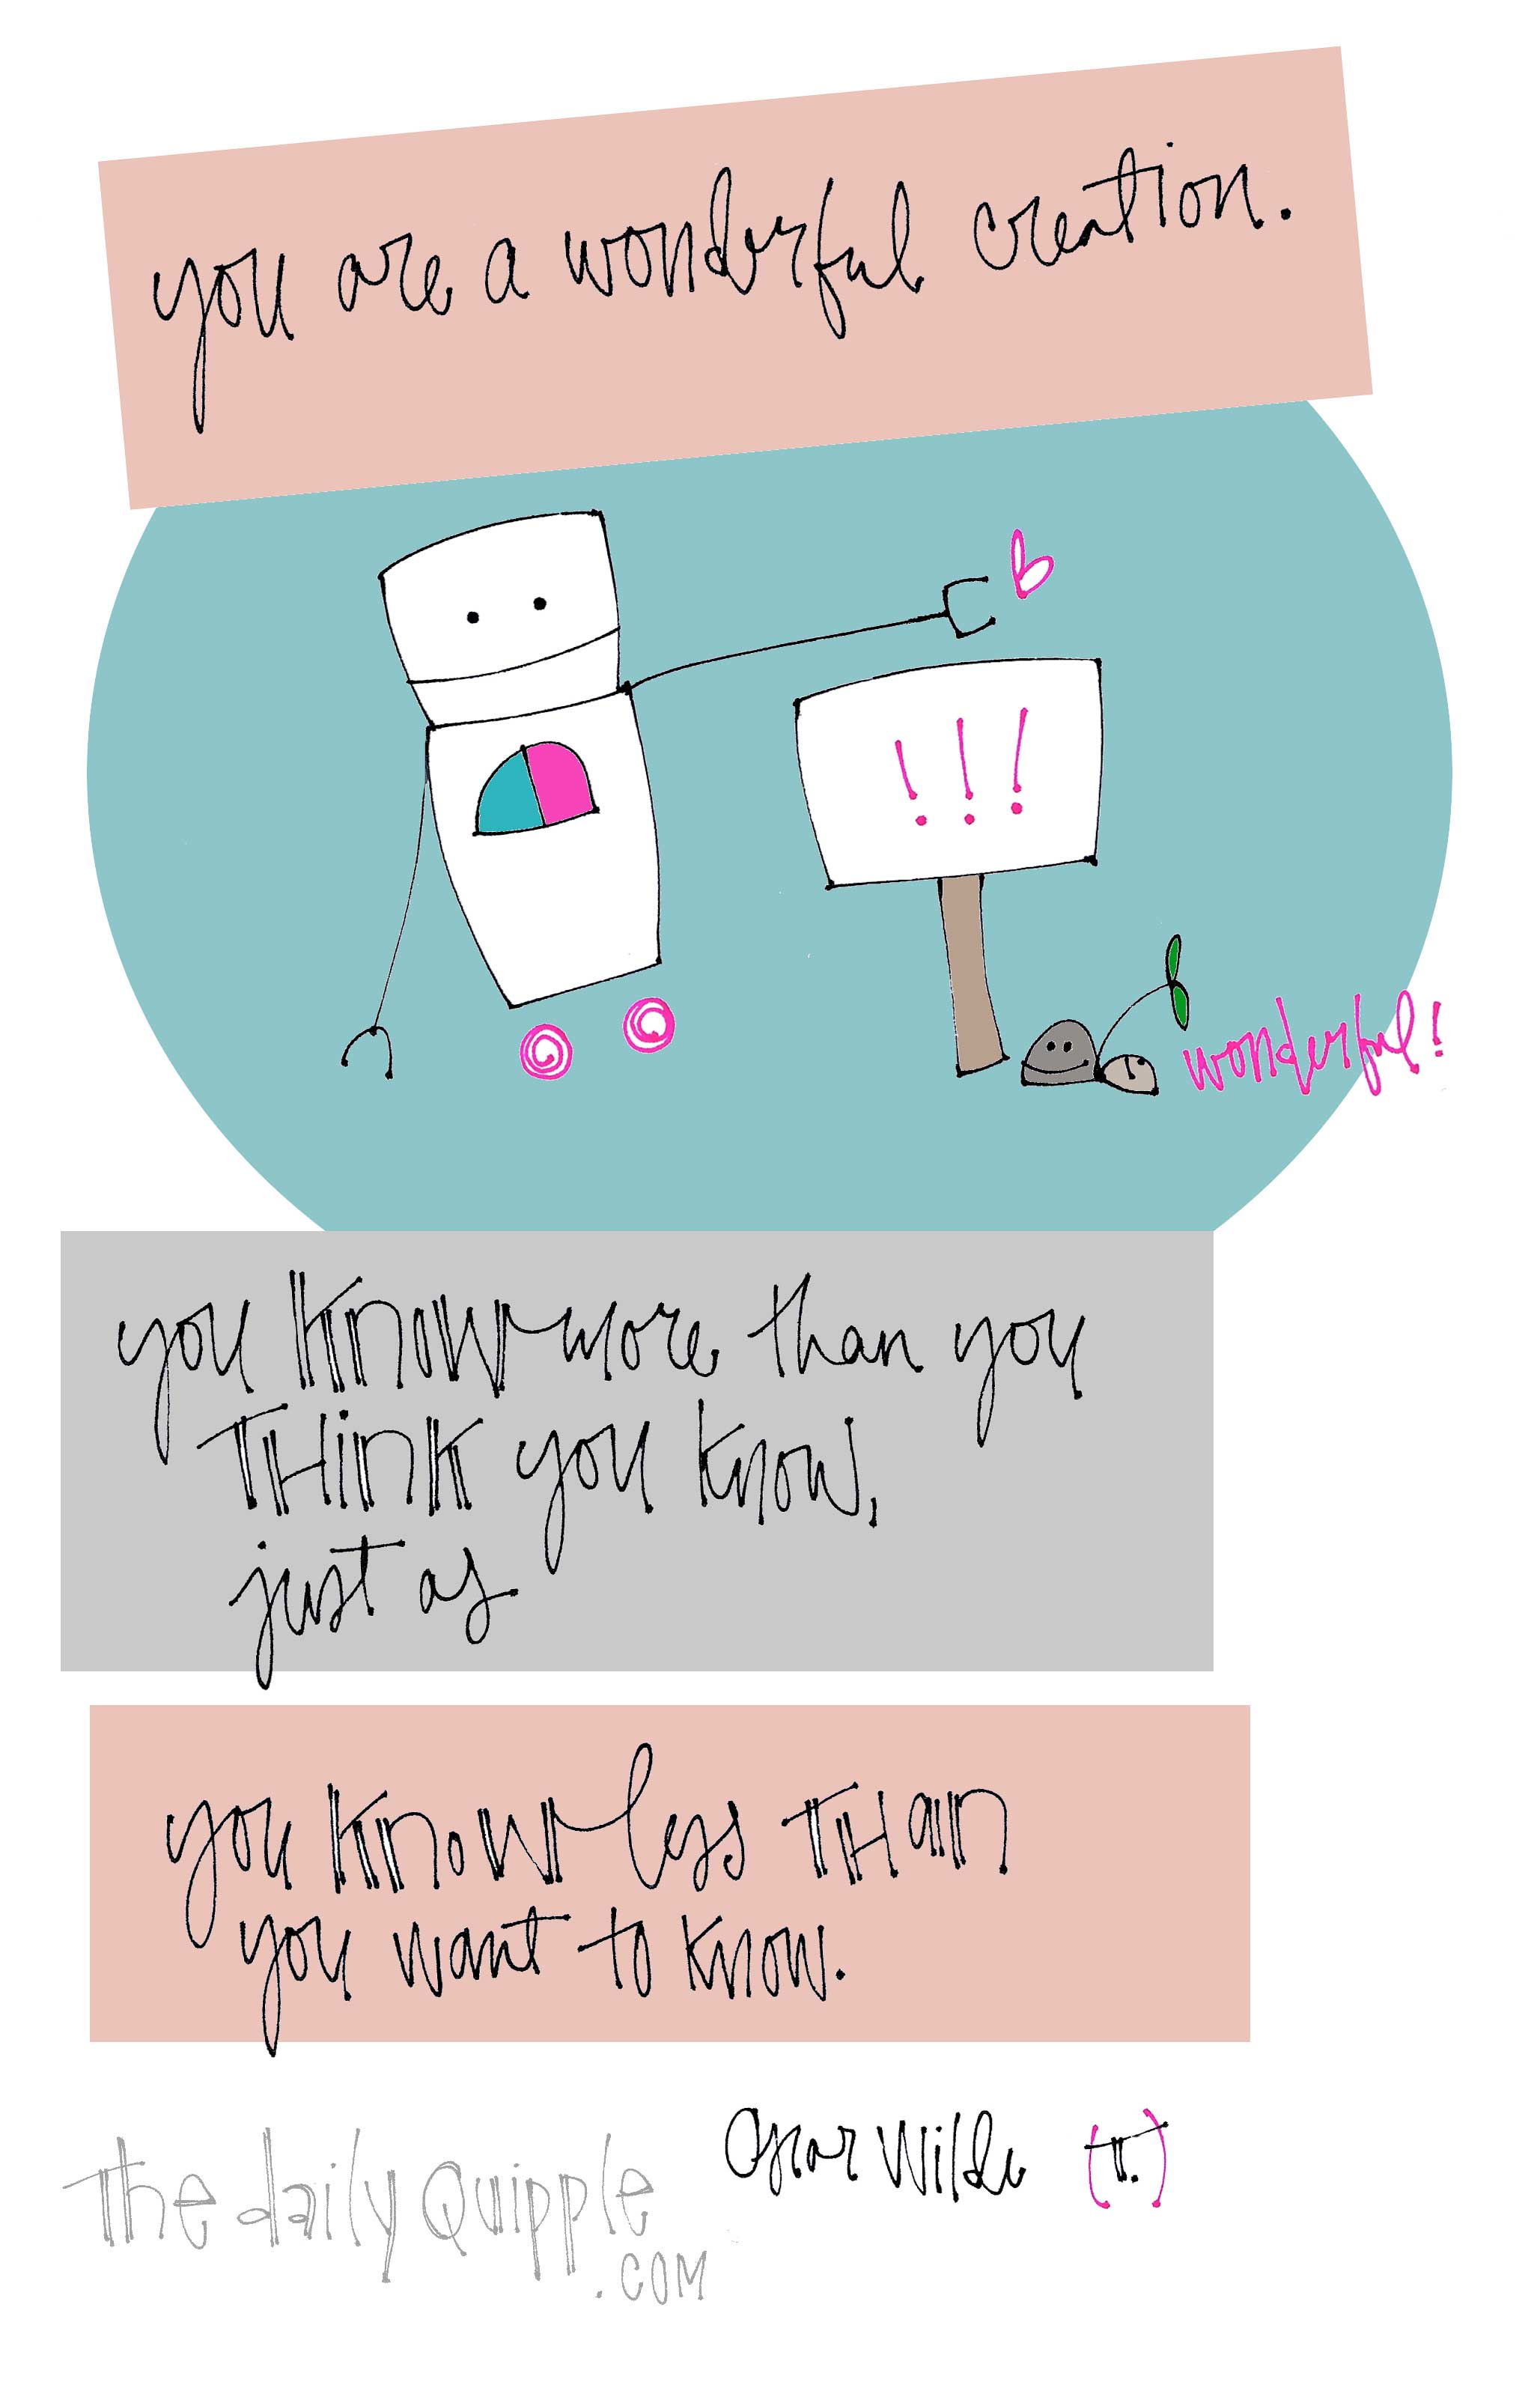 you are a wonderful creation.
!!!
wonderful!
you know more than you
THink you know,
just as
you know less THan
you want to know.
Oscar Wilde (π.)
The daily Quipple
.com